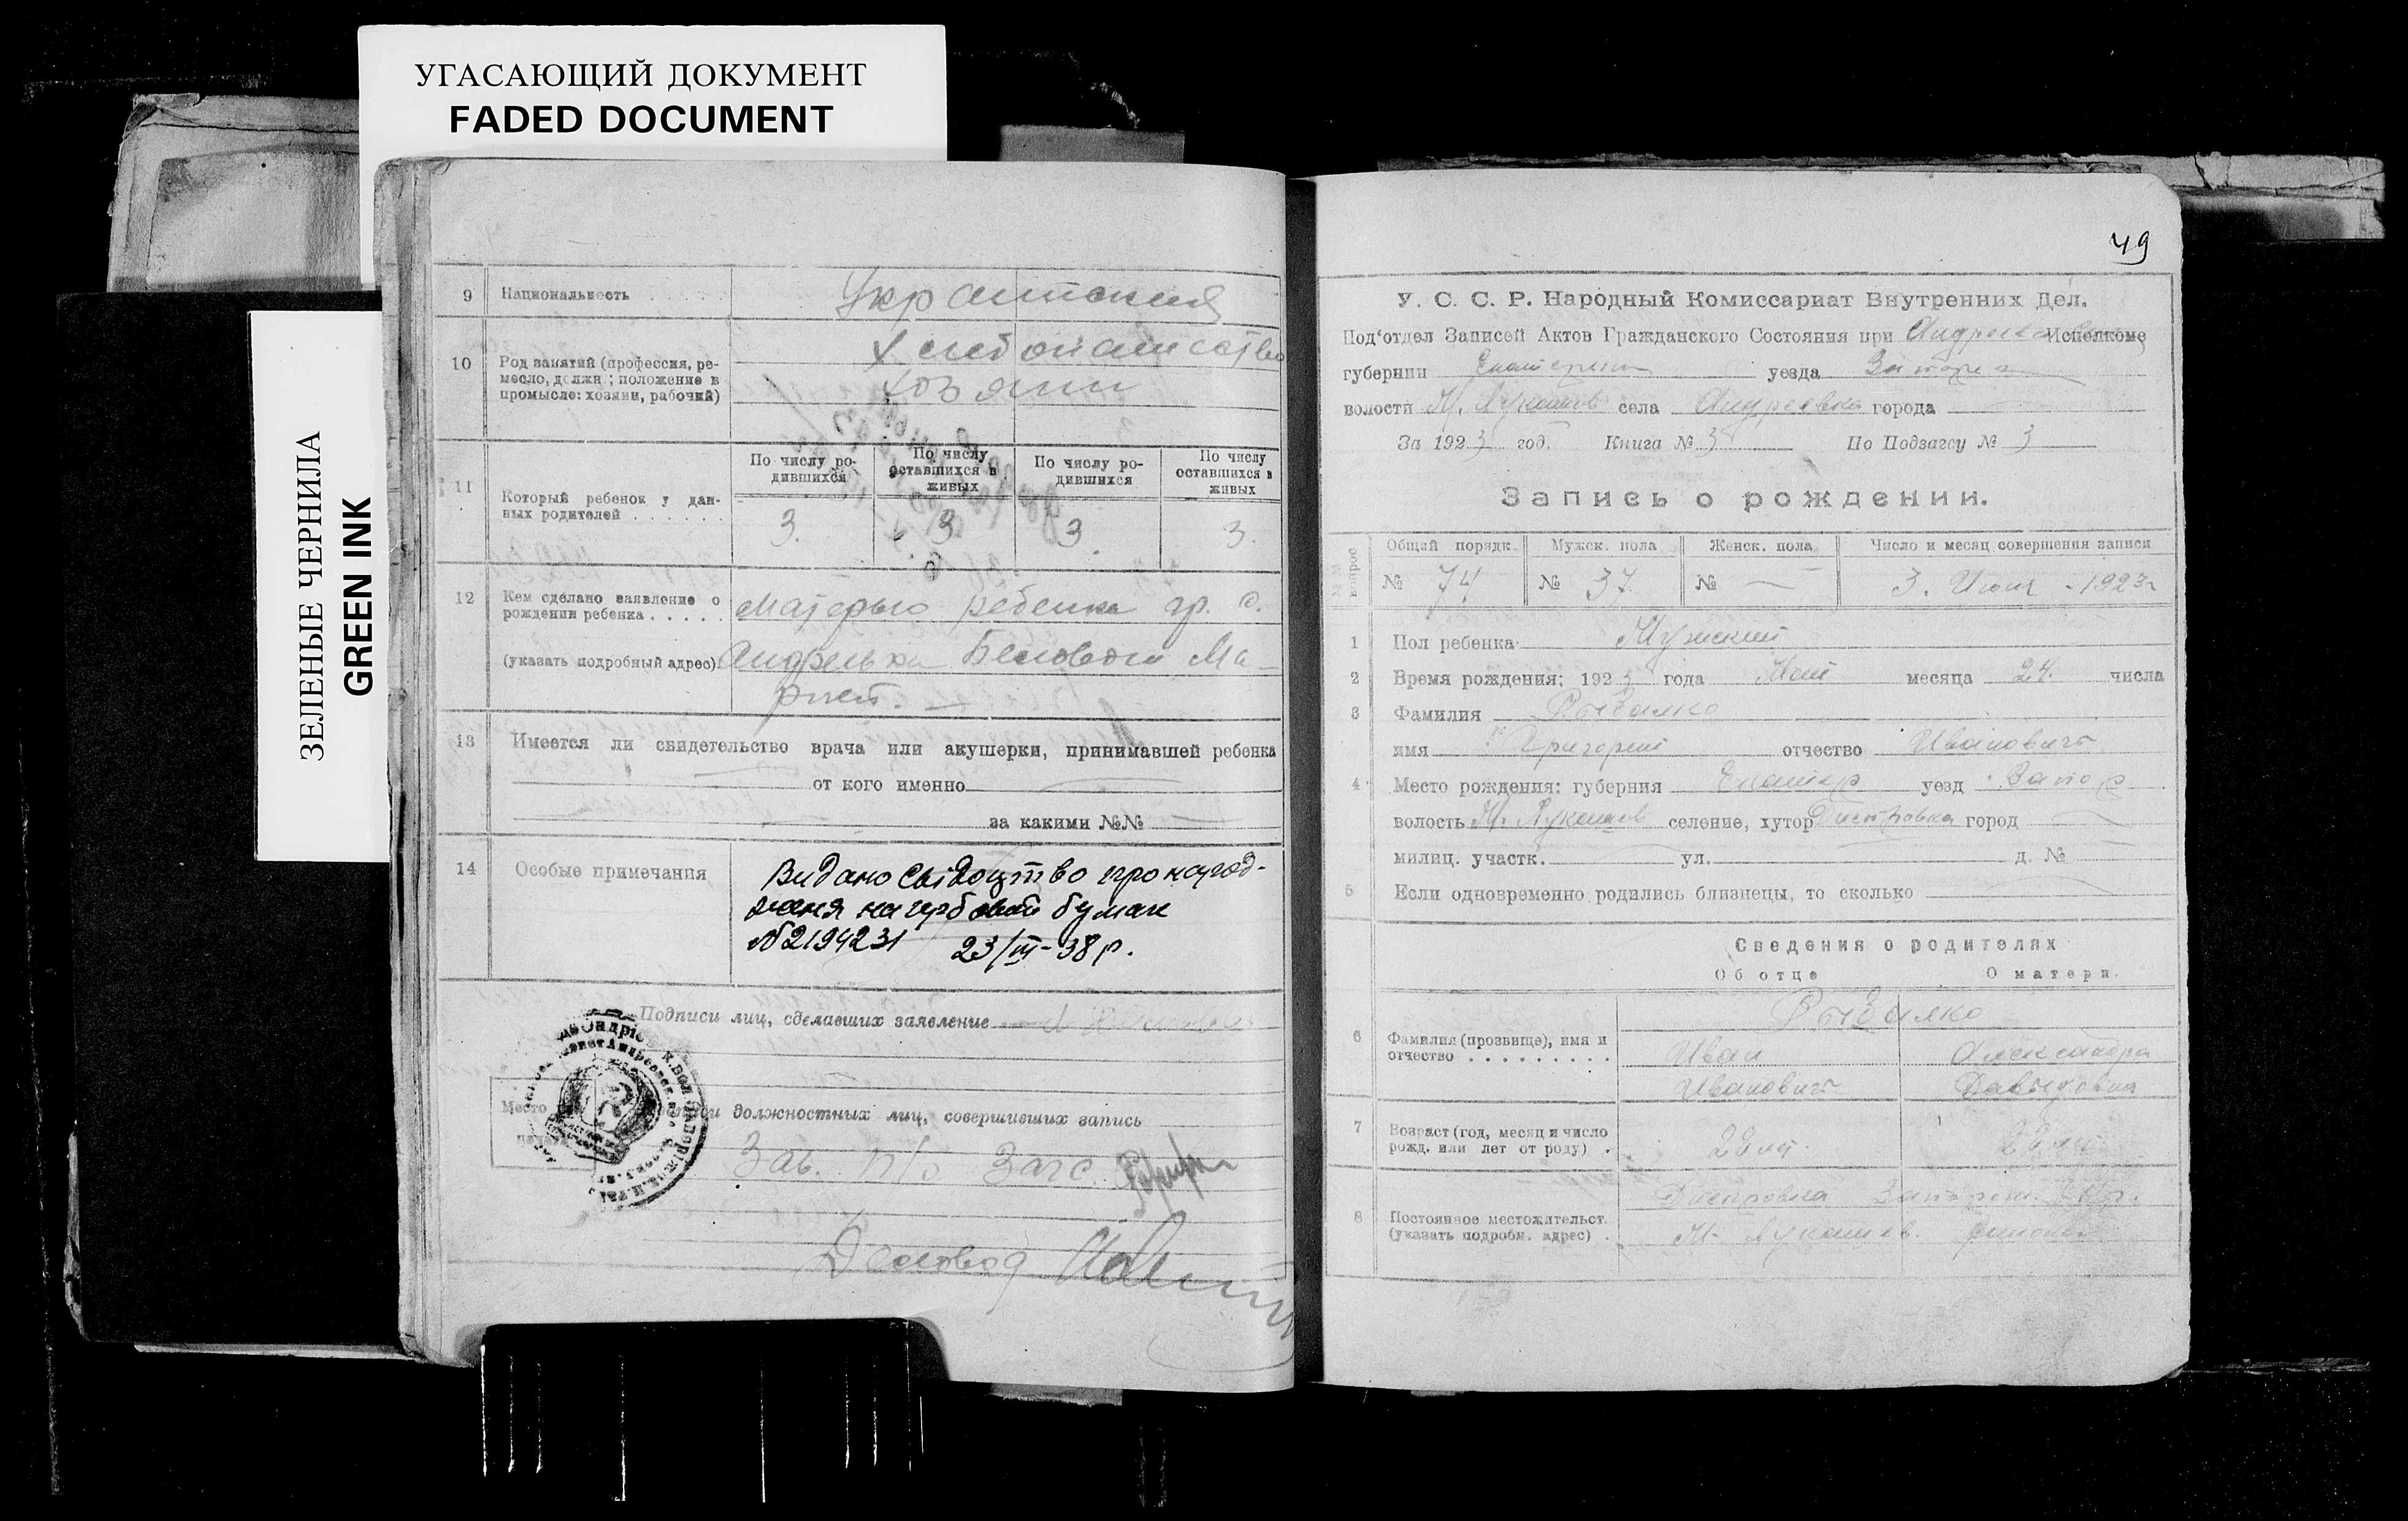 УГАСАЮЩИЙ ДОКУМЕНТ
FADED DOCUMENT
ЗЕЛЕНЫЕ ЧЕРНИЛА
GREEN INK
9 Национальность Украинская
10 Род занятий (профессия, ре-
месло, должн.; положение в
промысле: хозяин, рабочий)
хозяин
11 Который ребенок у дан-
ных родителей
По числу ро-
дившихся
По числу
оставшихся в
живых
По числу ро-
дившихся
По числу
оставшихся в
живых
3. 3 3 3.
12 Кем сделано заявление о
рождении ребенка
матерью ребенка гр. с.
(указать подробный адрес)
Андреевка Беловой Ма-
рией.
13 Имеется ли свидетельство врача или акушерки, принимавшей ребенка
от кого именно
за какими №№
14 Особые примечания
Видано свідоцтво про народ-
женя на гербовой бумак
№ 2194231 23/III-38 р.
Подписи лиц, сделавших заявление
Место
печати
Подписи должностных лиц, совершивших запись
Зав. п/о Загс
Деловод
49
У. С. С. Р. Народный Комиссариат Внутренних Дел.
Под'отдел Записей Актов Гражданского Состояния при Андреевском Исполкоме
губернии Екатерин уезда Запорож
волости М. Лукашев села Андреевка города
За 1923 год. Книга № 3 По Подзагсу № 3
Запись о рождении.
Общий порядк. Мужск. пола Женск. пола Число и месяц совершения записи
№ 74 № 37 № — 3. Июня - 1923 г
1 Пол ребенка Мужский
2 Время рождения: 1923 года Мая месяца 24. числа
3 Фамилия Рыбалко
имя Григорий отчество Ивановичъ
4 Место рождения: губерния Екатер уезд Запор
волость М. Лукашев селение, хутор Днепровка город
милиц. участк. ул. д. №
5 Если одновременно родились близнецы, то сколько
Сведения о родителях
Об отце О матери.
6 Фамилия (прозвище), имя и
отчество
Рыбалко
Иван Александра
Ивановичъ Давыдовна
7 Возраст (год, месяц и число
рожд. или лет от роду)
28 лет 28 лет
8 Постоянное местожительст.
(указать подробн. адрес)
Днепровка Запорож.
М. Лукашев.